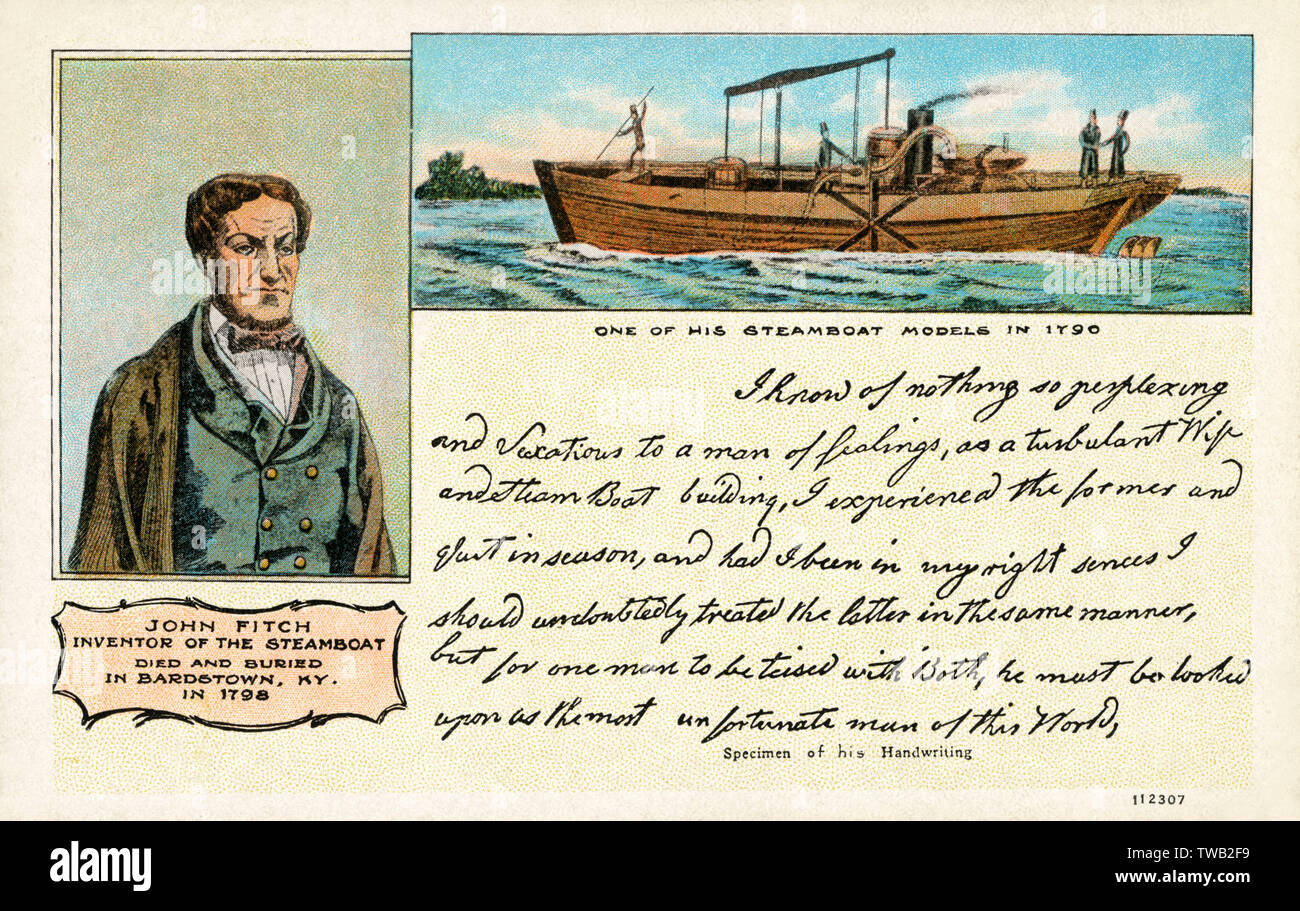 ONE OF HIS STEAMBOAT MODELS IN 1790
I know of nothing so perplexing
and Vexatious to a man of fealings, as a turbulant Wife
and Steam Boat building, I experienced the former and
quit in season, and had I been in my right sences I
should undoubtedly treated the latter in the same manner,
but for one man to be teised with Both, he must be looked
upon as the most unfortunate man of this World,
Specimen of his Handwriting
JOHN FITCH
INVENTOR OF THE STEAMBOAT
DIED AND BURIED
IN BARDSTOWN, KY.
IN 1798
112307
alamy
alamy
Image ID: TWB2F9
www.alamy.com